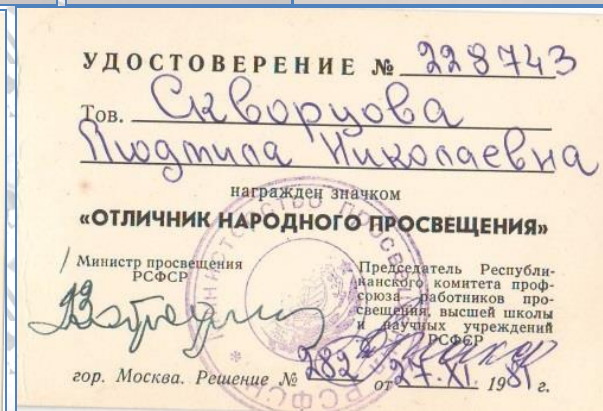 УДОСТОВЕРЕНИЕ № 228743
Тов. Скворцова
Людмила Николаевна
награжден значком
«ОТЛИЧНИК НАРОДНОГО ПРОСВЕЩЕНИЯ»
Министр просвещения
РСФСР
Председатель Республи-
канского комитета проф-
союза работников про-
свещения, высшей школы
и научных учреждений
РСФСР
гор. Москва. Решение № 282 от 27.XI. 1981 г.